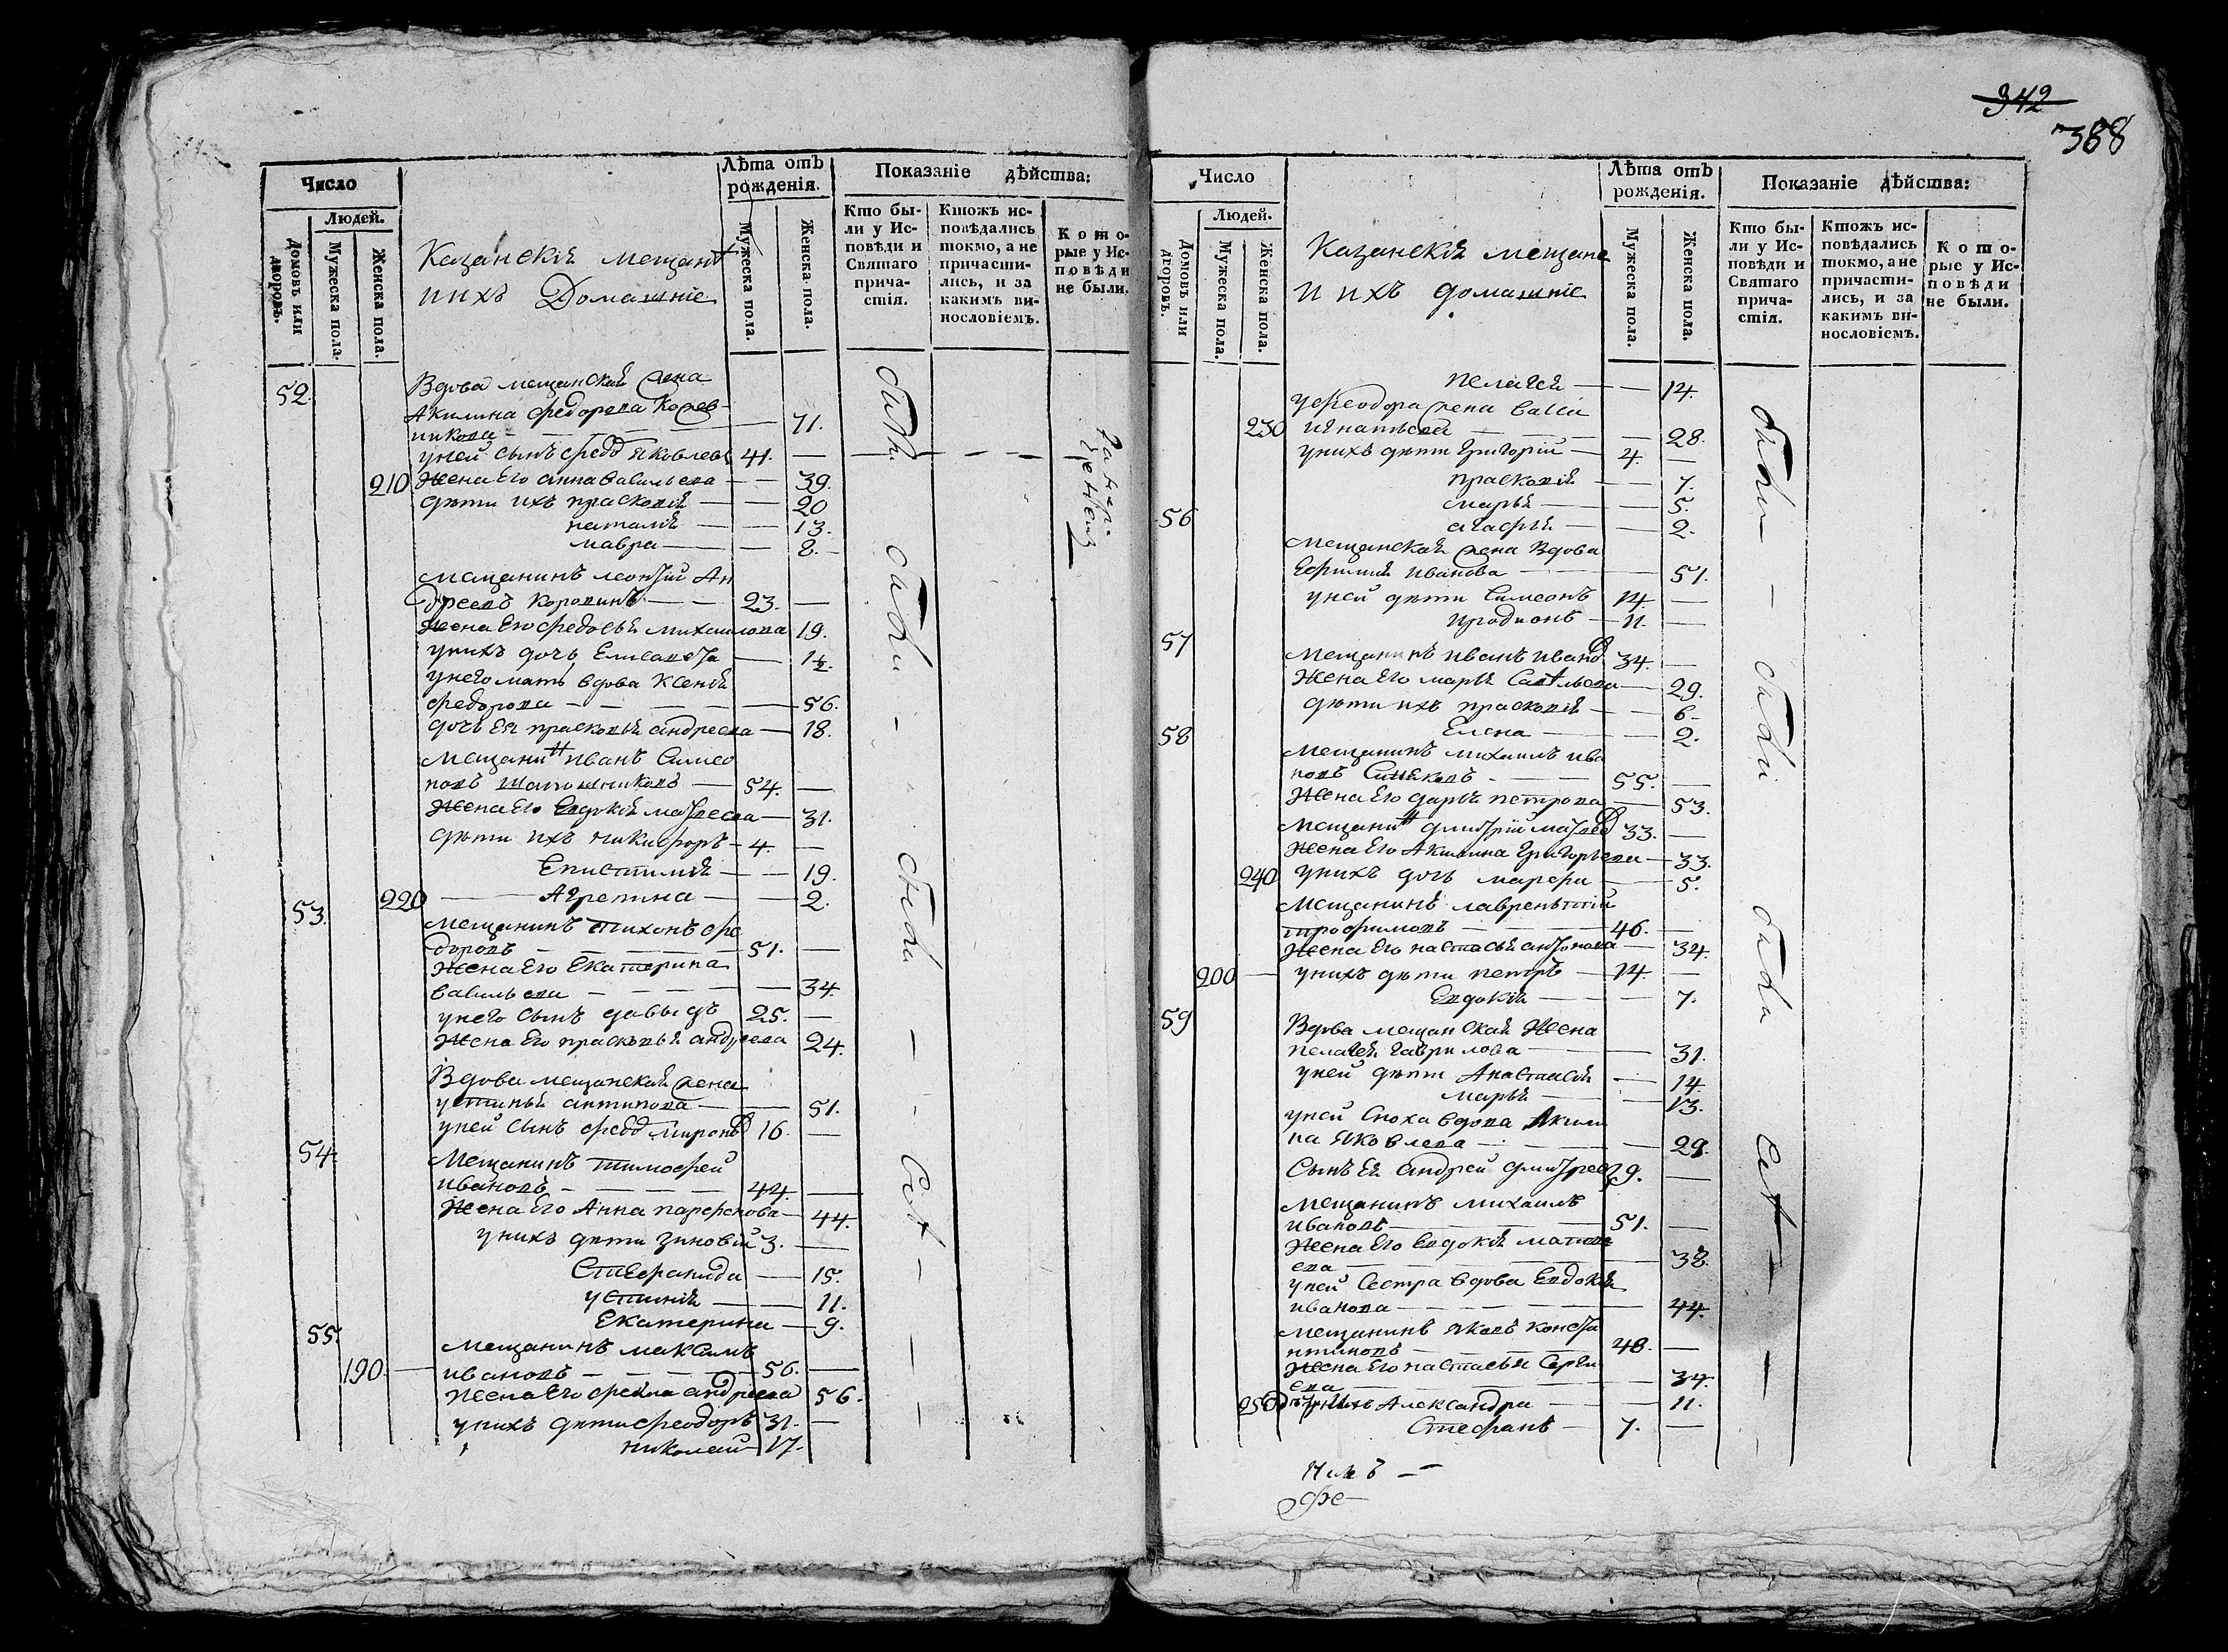 342
388
Число
Людей.
Домовъ или дворовъ.
Мужеска пола.
Женска пола.
Казанскія мещанѣ
и ихъ Домашніе
Лѣта отъ рожденія.
Мужеска пола.
Женска пола.
Показаніе дѣйства:
Кто были у Исповѣди и Святаго причастія.
Ктожъ исповѣдались токмо, а не причастились, и за какимъ винословіемъ.
Которые у Исповѣди не были.
52. Вдова мещанская жена
Акилина федорова
никова — 71.
у ней сынъ федо Яковлевъ 41. —
210 Жена Его анна васильева — 39.
дѣти ихъ прасковія — 20
наталія — 13.
мавра — 8.
мещанинъ леонтій Ан
дреевъ — 23. —
Жена Его федосья михаилова 19.
у нихъ дочь Елисавета — 1½.
у него мать вдова Ксенія
федорова — 56.
дочь Ея прасковья андреева — 18.
мещанинъ иванъ Симео
новъ — 54. —
Жена Его Евдокія матвеева — 31.
дѣти ихъ никифоръ — 4. —
Епистимія — 19.
220 — Агрепина — 2.
53. мещанинъ тихонъ фе
доровъ — 51. —
Жена Его Екатерина
васильева — 34.
у него сынъ давыдъ 25. —
Жена Его прасковья андреева 24.
Вдова мещанская жена
устинья антипова — 51.
у ней сынъ федо мироновъ 16. —
54. Мещанинъ тимофей
ивановъ — 44. —
Жена Его Анна парфенова — 44.
у нихъ дѣти зиновій 3. —
Стефанида — 15.
устинія — 11.
Екатерина — 9.
55. мещанинъ максимъ
190. — ивановъ — 56. —
Жена Его андреева 56.
у нихъ дѣти феодоръ 31. —
николай 17.
были
были
были
Всѣ
Число
Людей.
Домовъ или дворовъ.
Мужеска пола.
Женска пола.
Казанскія мещане
и ихъ домашніе
Лѣта отъ рожденія.
Мужеска пола.
Женска пола.
Показаніе дѣйства:
Кто были у Исповѣди и Святаго причастія.
Ктожъ исповѣдались токмо, а не причастились, и за какимъ винословіемъ.
Которые у Исповѣди не были.
пелагея — 14.
у феодора жена васса
230 игнатьева — 28.
у нихъ дѣти григорій — 4. —
прасковія — 7.
марья — 5.
56 агафья — 2.
мещанская жена Вдова
Ефимия иванова — 51.
у ней дѣти Симеонъ 14. —
иродионъ — 11. —
57 мещанинъ иванъ ивановъ 34. —
Жена Его марья Савельева — 29.
дѣти ихъ прасковія — 6.
58 Елена — 2.
мещанинъ михаилъ ива
новъ — 55. —
Жена Его дарья петрова — 53.
мещанинъ дмитрій матвеев 33. —
Жена Его Акилина григорьева — 33.
240 у нихъ дочь марфа — 5.
мещанинъ лаврентій
трофимовъ — 46. —
Жена Его настасья антонова — 34.
200 — у нихъ дѣти петръ — 14. —
Евдокія — 7.
59 Вдова мещанская Жена
пелагея гаврилова — 31.
у ней дѣти Анастасія — 14.
марья — 13.
у ней сноха вдова Акили
на Яковлева — 29.
Сынъ Ея андрей дмитреев 9. —
мещанинъ михаилъ
ивановъ — 51. —
Жена Его Евдокія матве
ева — 38.
у ней Сестра вдова Евдокия
иванова — 44.
мещанинъ яковъ конста
нтиновъ — 48. —
Жена Его настасья Серги
ева — 34.
250 Александра — 11.
Стефанъ — 7. —
были
были
были
Всѣ